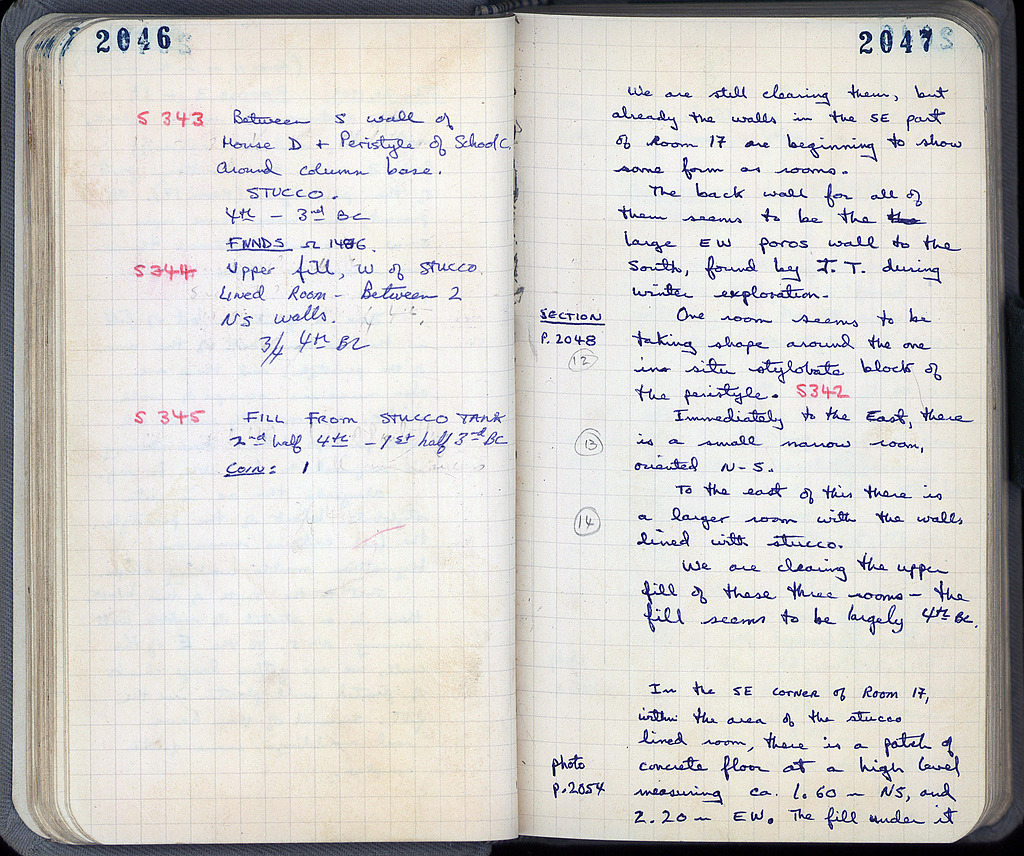 2046
S 343 Between S wall of
House D + Peristyle of School C,
around column base.
STUCCO.
4th - 3rd BC
FNNDS Ω 1486.
S 344 Upper fill, W of STUCCO
Lined Room - Between 2
NS walls.
3/4 4th BC
S 345 FILL FROM STUCCO TANK
2nd half 4th - 1st half 3rd BC
COIN: 1
2047
We are still clearing them, but
already the walls in the SE part
of Room 17 are beginning to show
some form as rooms.
The back wall for all of
them seems to be the the
large EW poros wall to the
South, found by I. T. during
winter exploration.
SECTION
P. 2048
12
One room seems to be
taking shape around the one
in situ stylobate block of
the peristyle. S342
Immediately to the East, there
13
is a small narrow room,
oriented N-S.
To the east of this there is
14
a larger room with the walls
lined with stucco.
We are clearing the upper
fill of these three rooms - the
fill seems to be largely 4th BC.
In the SE corner of Room 17,
within the area of the stucco
lined room, there is a patch of
photo
p. 2054
concrete floor at a high level
measuring ca. 1.60 m NS, and
2.20 m EW. The fill under it